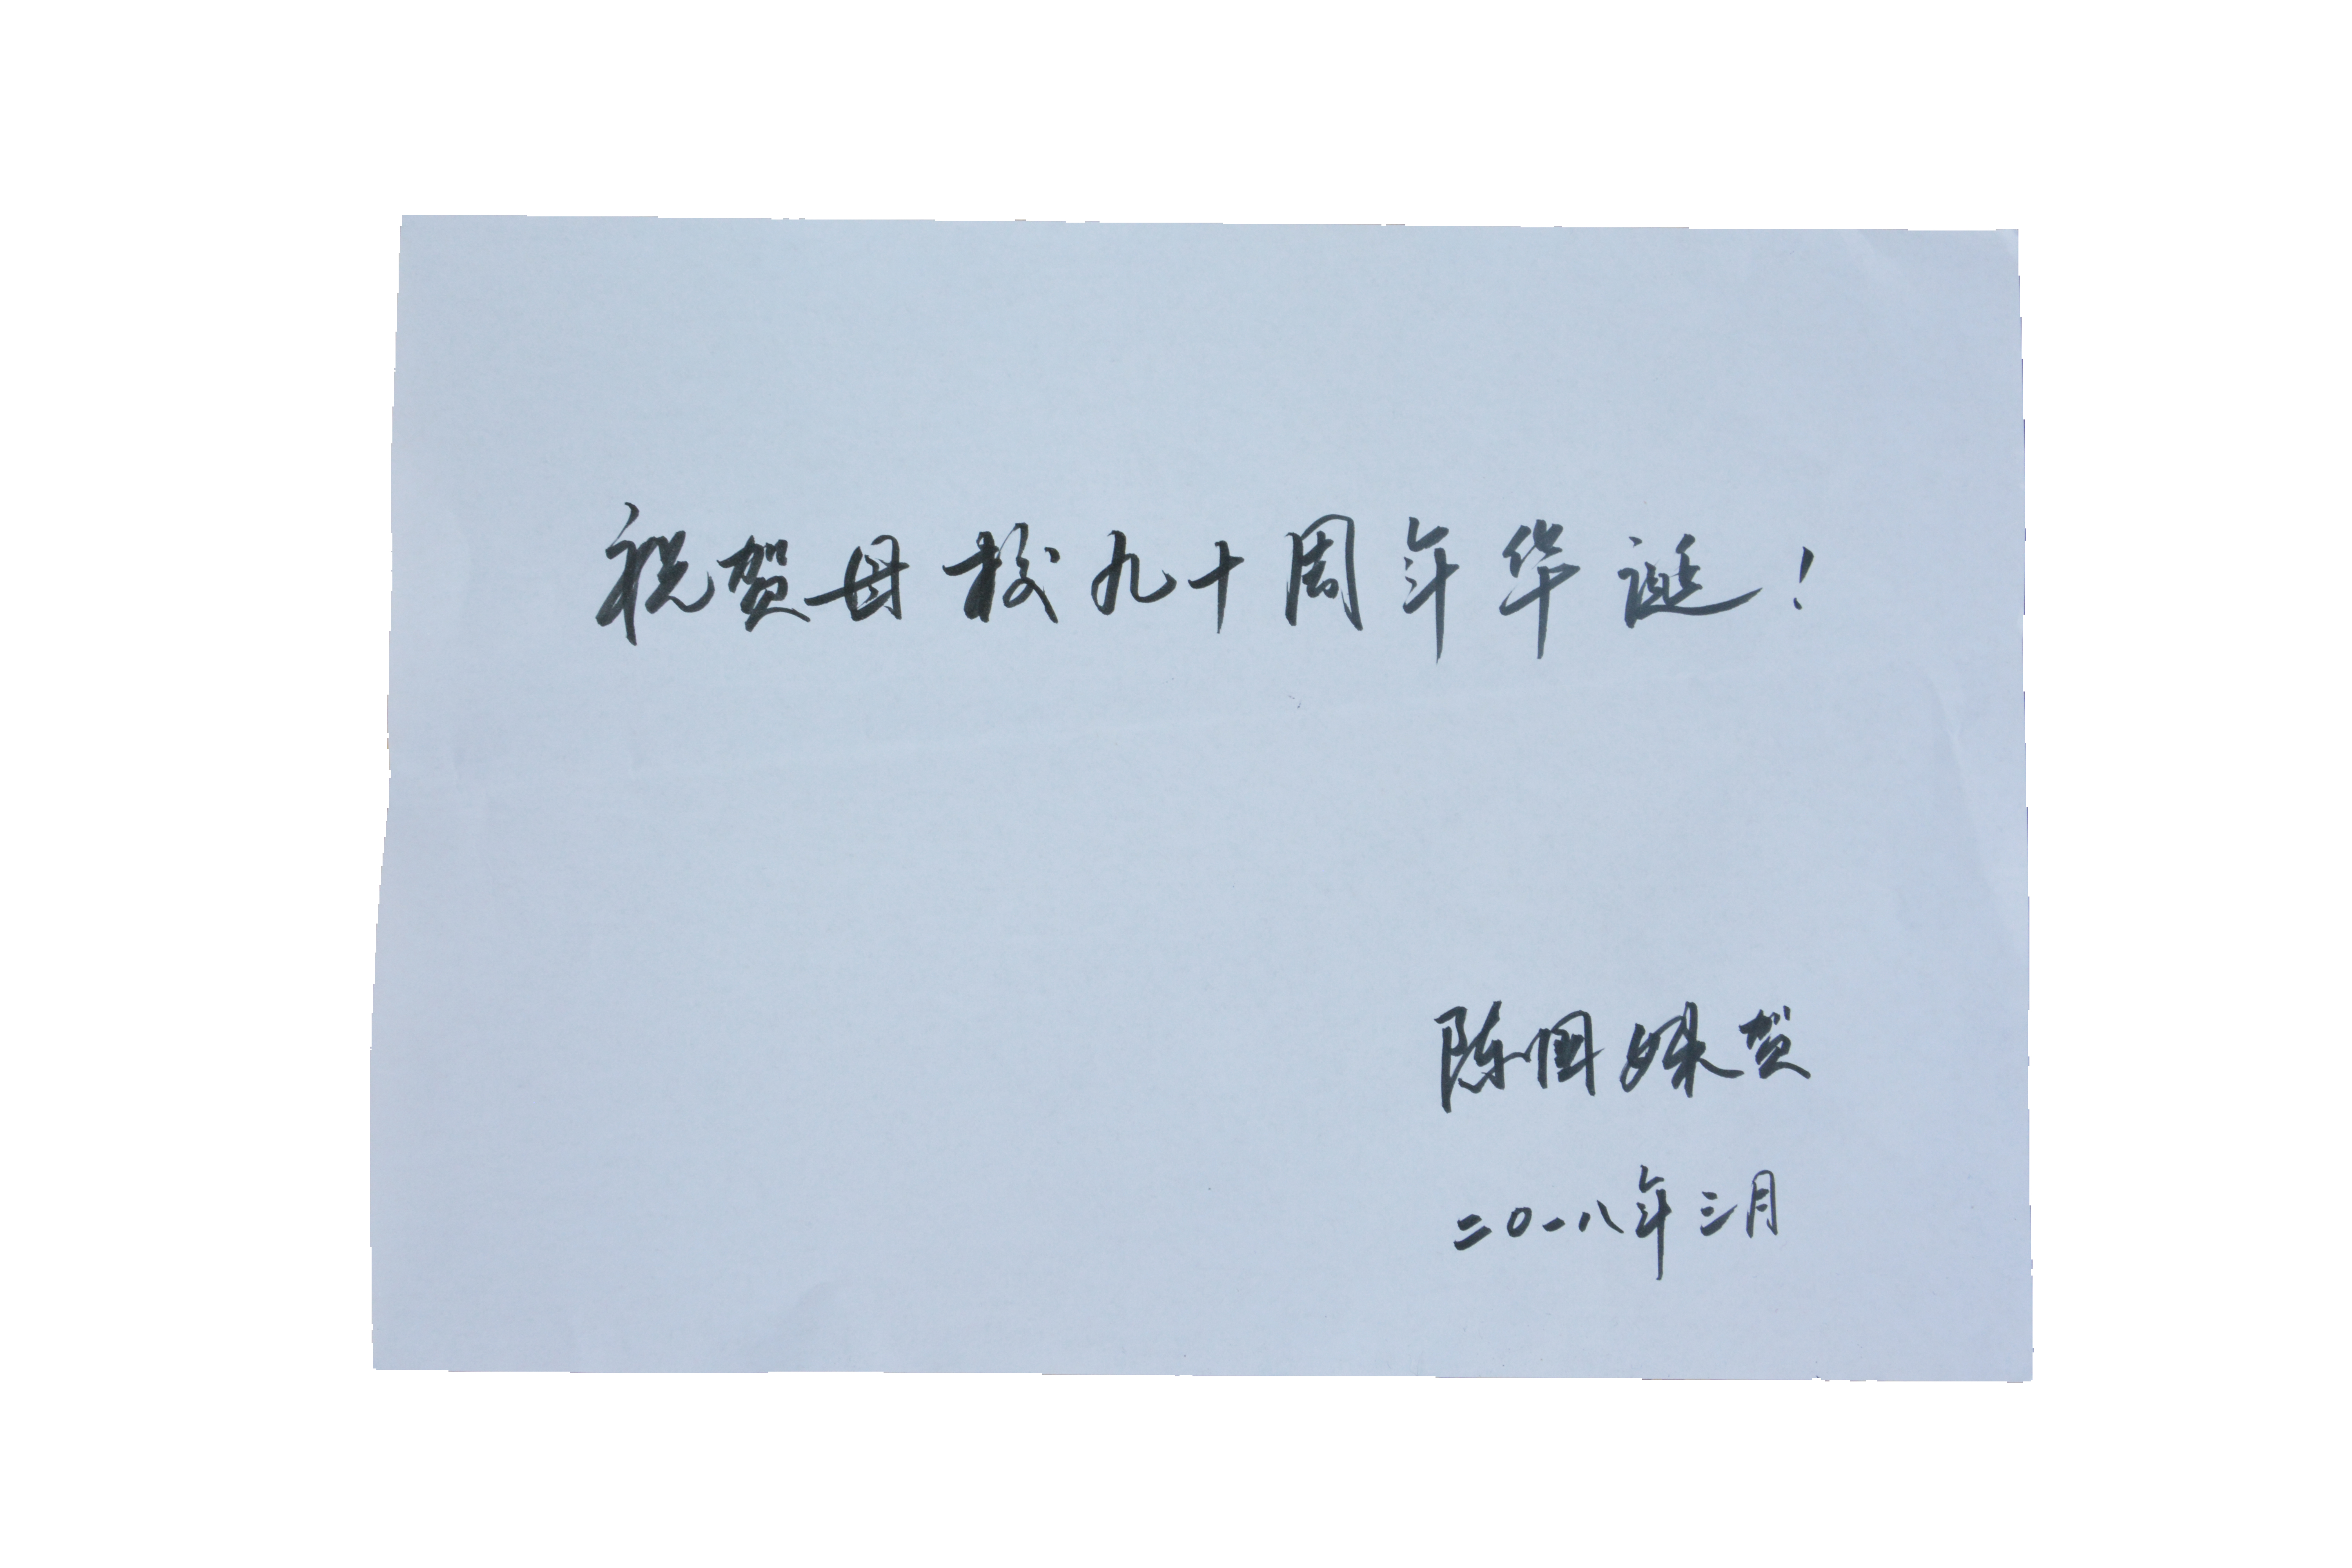 祝贺母校九十周年华诞！
陈国 贺
二〇一八年三月